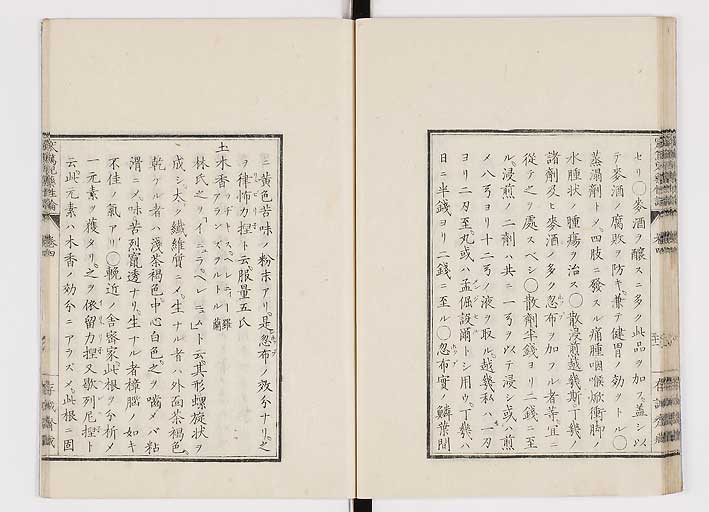 セリ〇麥酒ヲ釀スニ多ク此品ヲ加フ盖シ以
テ麥酒ノ腐敗ヲ防キ兼テ健胃ノ効ヲトル〇
蒸溻劑トメ四肢ニ發スル痛腫咽喉焮衝脚ノ
水腫状ノ腫瘍ヲ治ス〇散浸煎越幾斯丁幾ノ
諸劑及ヒ麥酒ノ多ク忽布ヲ加フル者等宜ニ
從テ之ヲ處スベシ〇散劑半錢ヨリ二錢ニ至
ル浸煎ノ二劑ハ共ニ一弓ヲ以テ浸シ或ハ煎
ノ八弓ヨリ十二弓ノ液ヲ取ル越幾私ハ一刃
ヨリ二刃至丸或ハ孟倔設爾トシ用ウ丁幾ハ
日ニ半錢ヨリ二錢ニ至ル〇忽布實ノ鱗葉間
ニ黄色苦味ノ粉末アリ是忽布ノ効分ナリ之
ヲ律怖力捏ト云服量五氏
土木香
羅
蘭
林氏之ヲイニュラヘレニウムト云其形螺旋状ヲ
成シ太ク纎維質ニメ生ナル者ハ外面茶褐色
乾ケル者ハ淺茶褐色中心白色之ヲ嚙メバ粘
滑ニメ味苦烈竄透ナリ生ナル者樟腦ノ如キ
不佳ノ氣アリ〇輓近ノ舎密家此根ヲ分析メ
一元素ヲ獲タリ之ヲ依留力捏又歇列尼捏ト
云此元素ハ木香ノ効分ニアラズメ此根ニ固